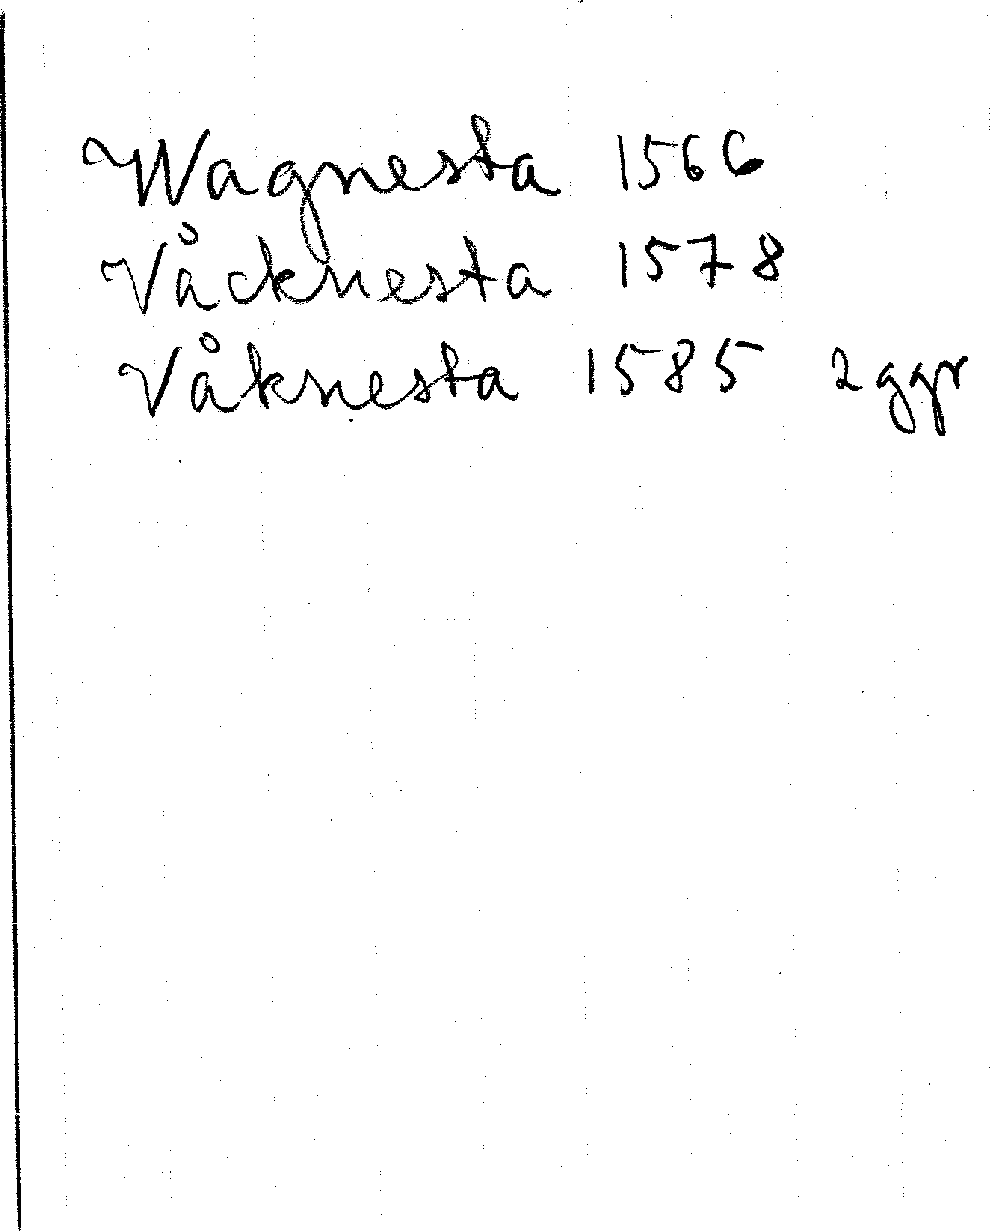 Wagnesta 1566
Våcknesta 1578
Våknesta 1585 2 ggr